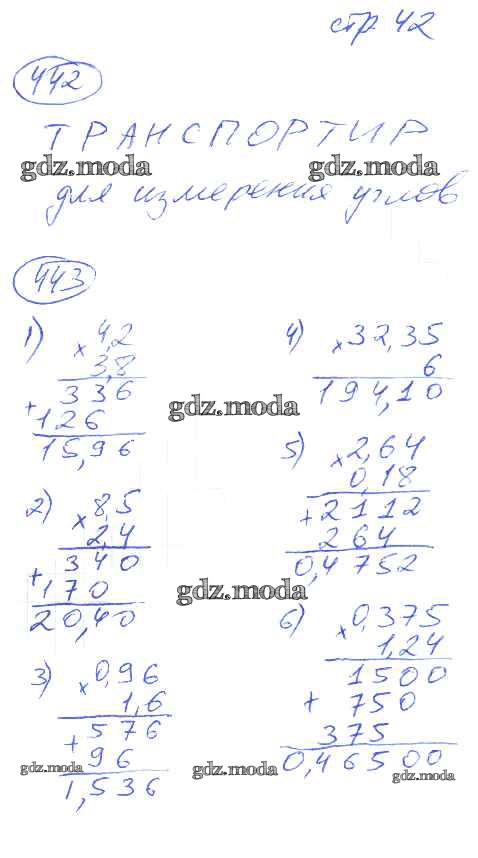 стр 42
442
ТРАНСПОРТИР
gdz.moda gdz.moda
для измерения углов
443
1) × 4,2
3,8
336
+ 126
15,96
gdz.moda
2) × 8,5
2,4
340
+ 170
20,40
gdz.moda
3) × 0,96
1,6
576
+ 96
1,536
gdz.moda
4) × 32,35
6
194,10
5) × 2,64
0,18
+ 2112
264
0,4752
6) × 0,375
1,24
1500
+ 750
375
0,46500
gdz.moda gdz.moda